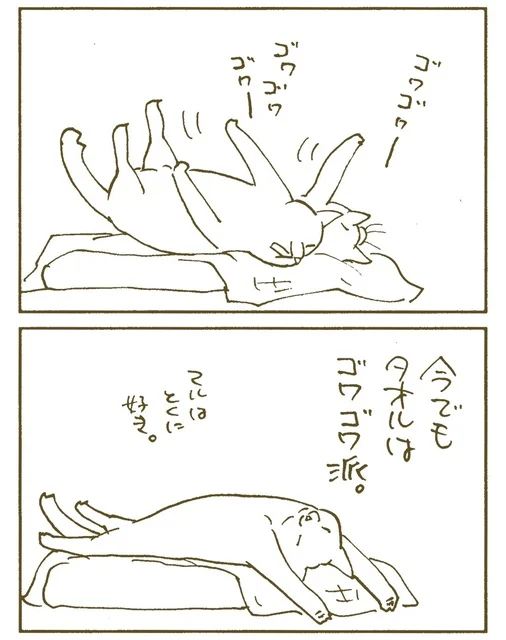 ゴワゴワー
ゴワゴワ
ゴワー
今でも
タオルは
ゴワゴワ派。
マルは
とくに
好き。